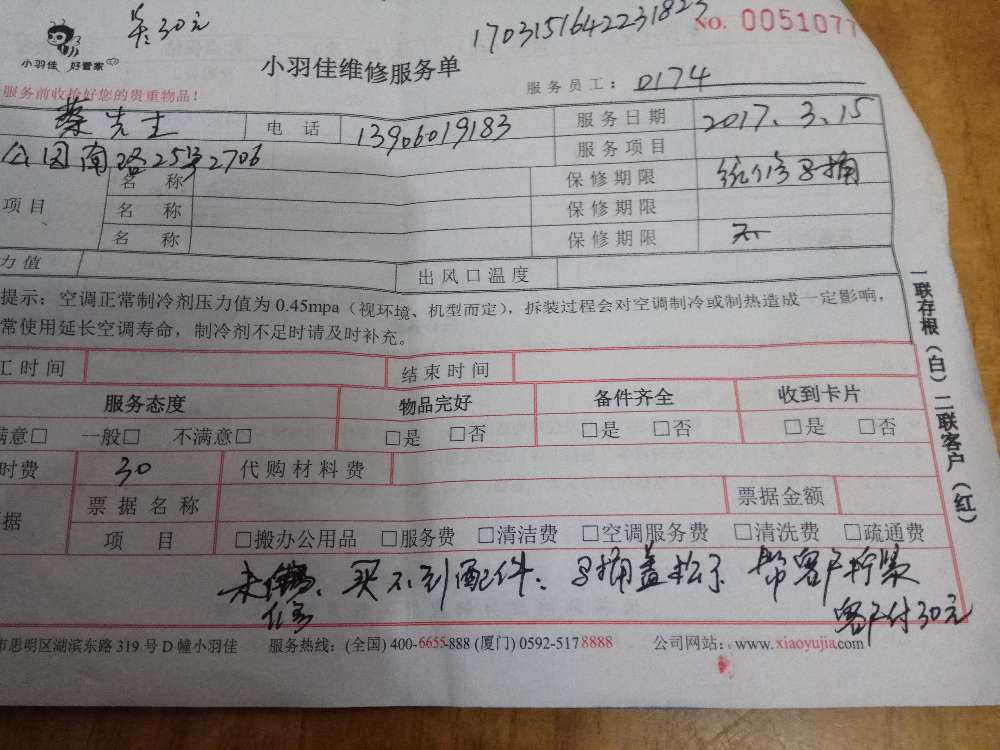 笑30元
170315164223 1823
NO. 0051077
小羽佳 好管家
小羽佳维修服务单
服务员工: 0174
服务前收拾好您的贵重物品!
蔡先生 电 话 13906019183 服务日期 2017.3.15
公园南路25号2706 服务项目
名 称 保修期限 统修马捅
项目 名 称 保修期限
名 称 保修期限 不
力值 出风口温度
提示: 空调正常制冷剂压力值为0.45mpa(视环境、机型而定), 拆装过程会对空调制冷或制热造成一定影响,
常使用延长空调寿命, 制冷剂不足时请及时补充。
工时间 结束时间
服务态度 物品完好 备件齐全 收到卡片
满意□ 一般□ 不满意□ □是 □否 □是 □否 □是 □否
时费 30 代购材料费
票据名称 票据金额
据 项 目 □搬办公用品 □服务费 □清洁费 □空调服务费 □清洗费 □疏通费
未修、买不到配件、马捅盖松了 帮客户拧紧
客户付30元
市思明区湖滨东路319号D幢小羽佳 服务热线: (全国) 400-6655-888 (厦门) 0592-5178888 公司网站: www.xiaoyujia.com
一联存根(白) 二联客户(红)